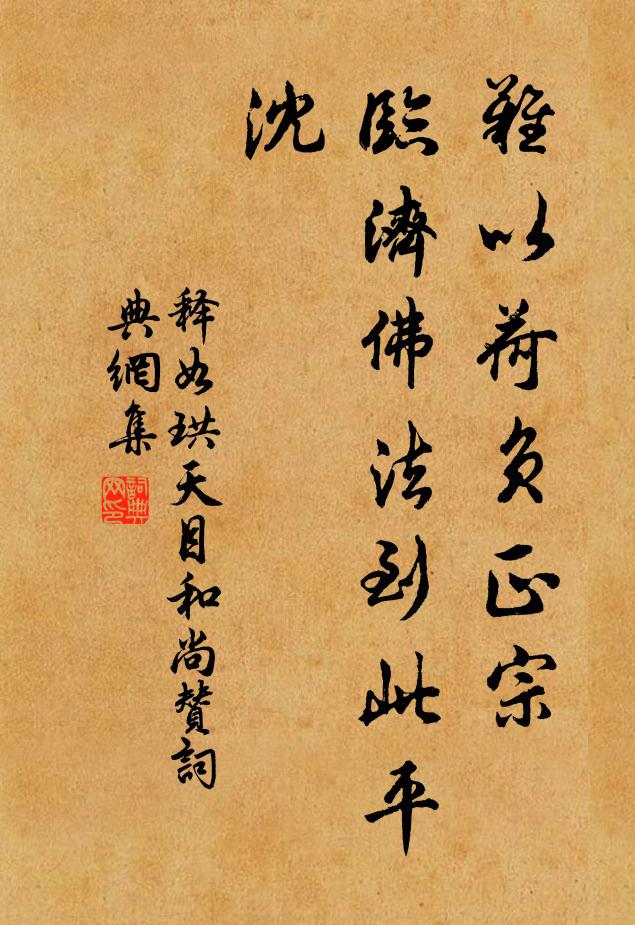 難以荷負正宗
臨濟佛法到此平
沈
釋如珙天目和尚贊詞
典網集
詞典
网印